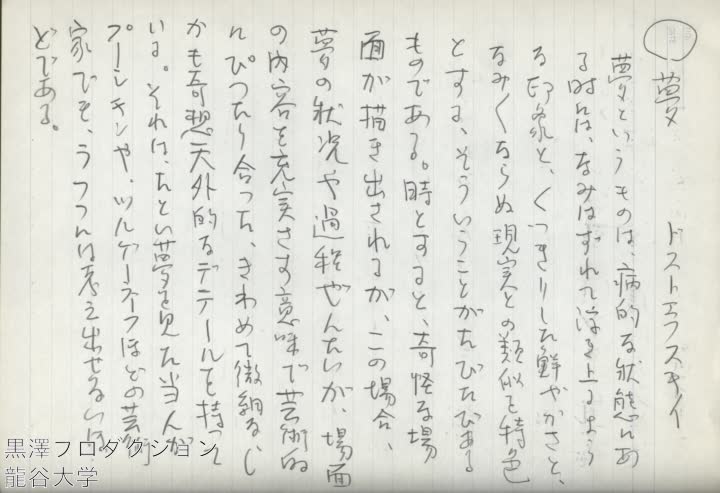 夢
ドストエフスキイ
夢というものは、病的な状態にあ
る時には、なみはずれて浮き上るよう
な印象と、くっきりした鮮やかさと、
なみくならぬ現実との類似を特色
とする、そういうことがたびたびある
ものである。時とすると、奇怪な場
面が描き出されるが、この場合、
夢の状況や過程ぜんたいが、場面
の内容を充実さす意味で芸術的
にぴったり合った、きわめて微細なし
かも奇想天外的なデテールを持って
いる。それは、たとい夢を見た当人が
プーシキンや、ツルゲーネフほどの芸術
家でも、うつつには考え出せないほ
どである。
黒澤プロダクション
龍谷大学